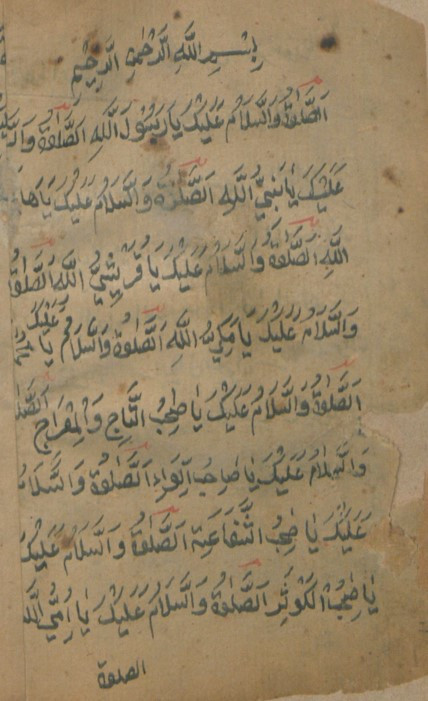 بِسْمِ اللَّهِ الرَّحْمٰنِ الرَّحِيْمِ
اَلصَّلٰوةُ وَالسَّلَامُ عَلَيْكَ يَا رَسُوْلَ اللّٰهِ اَلصَّلٰوةُ
عَلَيْكَ يَا نَبِيَّ اللّٰهِ اَلصَّلٰوةُ وَالسَّلَامُ عَلَيْكَ
اللّٰهِ اَلصَّلٰوةُ وَالسَّلَامُ عَلَيْكَ يَا قُرَيْشِيَّ اللّٰهِ
وَالسَّلَامُ عَلَيْكَ يَا مَكِّيَ اللّٰهِ اَلصَّلٰوةُ وَالسَّلَامُ عَلَيْكَ يَا
اَلصَّلٰوةُ وَالسَّلَامُ عَلَيْكَ يَا صٰحِبُ التَّاجِ وَالْمِعْرَاجِ
وَالسَّلَامُ عَلَيْكَ يَا صَاحِبَ الِّوَاءِ اَلصَّلٰوةُ وَالسَّلَامُ
عَلَيْكَ يَا صٰحِبُ الشَّفَاعَةِ اَلصَّلٰوةُ وَالسَّلَامُ عَلَيْكَ
يَا صٰحِبُ الْكَوْثَرِ اَلصَّلٰوةُ وَالسَّلَامُ عَلَيْكَ يَا اُمِّيَّ
الصلوة